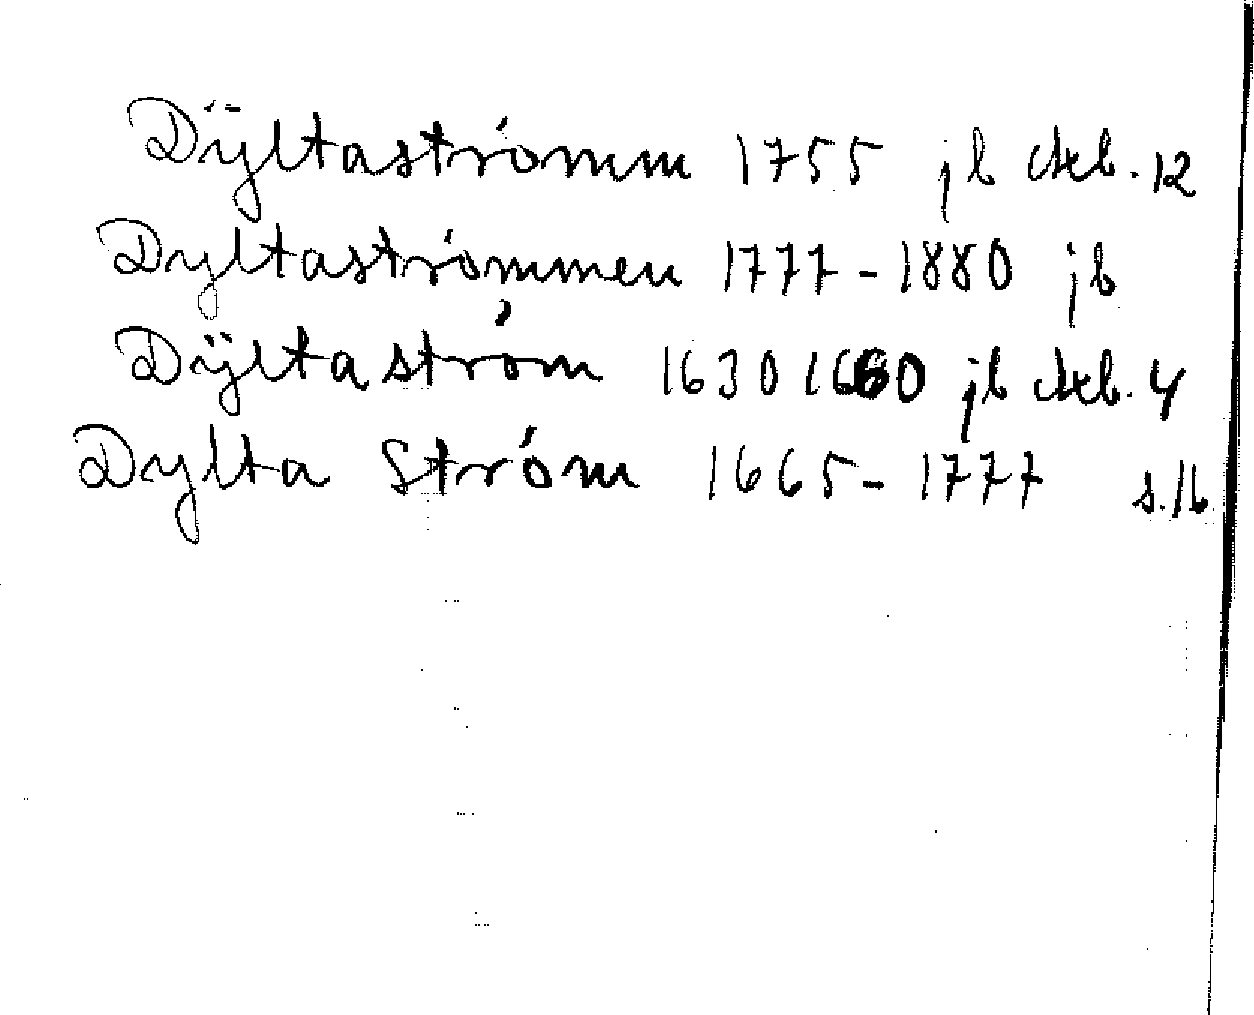 Dÿltaströmm 1755 jb Areb. 12
Dyltaströmmen 1777-1880 jb
Dÿltaström 1630 1660 jb Areb. 4
Dylta Ström 1665-1777 s. 16